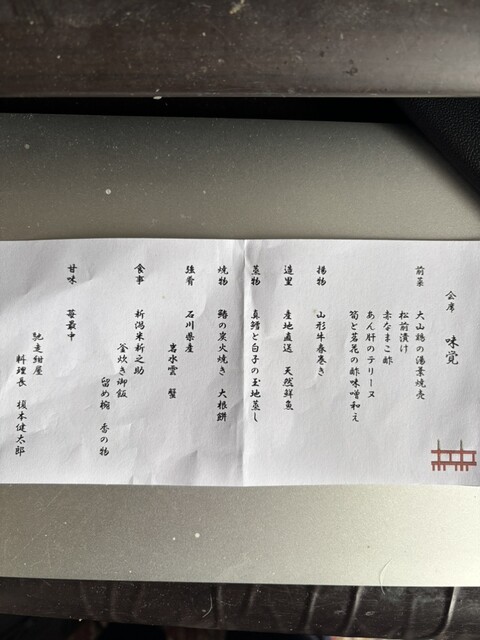 会席　味覚
前菜　大山鶏の湯葉焼売
松前漬け
赤なまこ酢
あん肝のテリーヌ
筍と菜花の酢味噌和え
揚物　山形牛春巻き
造里　産地直送　天然鮮魚
蒸物　真鱈と白子の玉地蒸し
焼物　鰆の炭火焼き　大根餅
強肴　石川県産
岩水雲　蟹
食事　新潟米新之助
釜炊き御飯
留め椀　香の物
甘味　苺最中
馳走紺屋
料理長　榎本健太郎